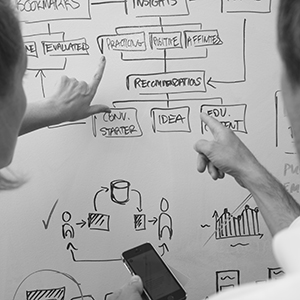 BOOKMARKS
INSIGHTS
EVALUATED
PRACTICING
POSITIVE
AFFILIATES
RECOMMENDATIONS
CONV.
STARTER
IDEA
EDU.